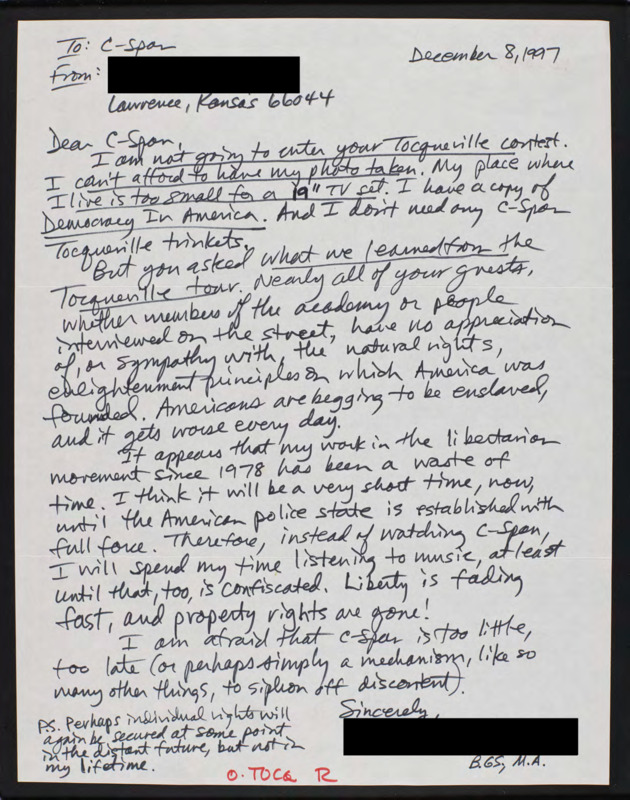 To: C-Span
December 8, 1997
From:
Lawrence, Kansas 66044
Dear C-Span,
I am not going to enter your Tocqueville contest.
I can't afford to have my photo taken. My place where
I live is too small for a 19" TV set. I have a copy of
Democracy In America. And I don't need any C-Span
Tocqueville trinkets.
But you asked what we learned from the
Tocqueville tour. Nearly all of your guests,
whether members of the academy or people
interviewed on the street, have no appreciation
of, or sympathy with, the natural rights,
enlightenment principles on which America was
founded. Americans are begging to be enslaved,
and it gets worse every day.
It appears that my work in the libertarian
movement since 1978 has been a waste of
time. I think it will be a very short time, now,
until the American police state is established with
full force. Therefore, instead of watching C-Span,
I will spend my time listening to music, at least
until that, too, is confiscated. Liberty is fading
fast, and property rights are gone!
I am afraid that C-Span is too little,
too late (or perhaps simply a mechanism, like so
many other things, to siphon off discontent).
Sincerely,
B.G.S., M.A.
P.S. Perhaps individual rights will
again be secured at some point
in the distant future, but not in
my lifetime.
O. TOCQ R